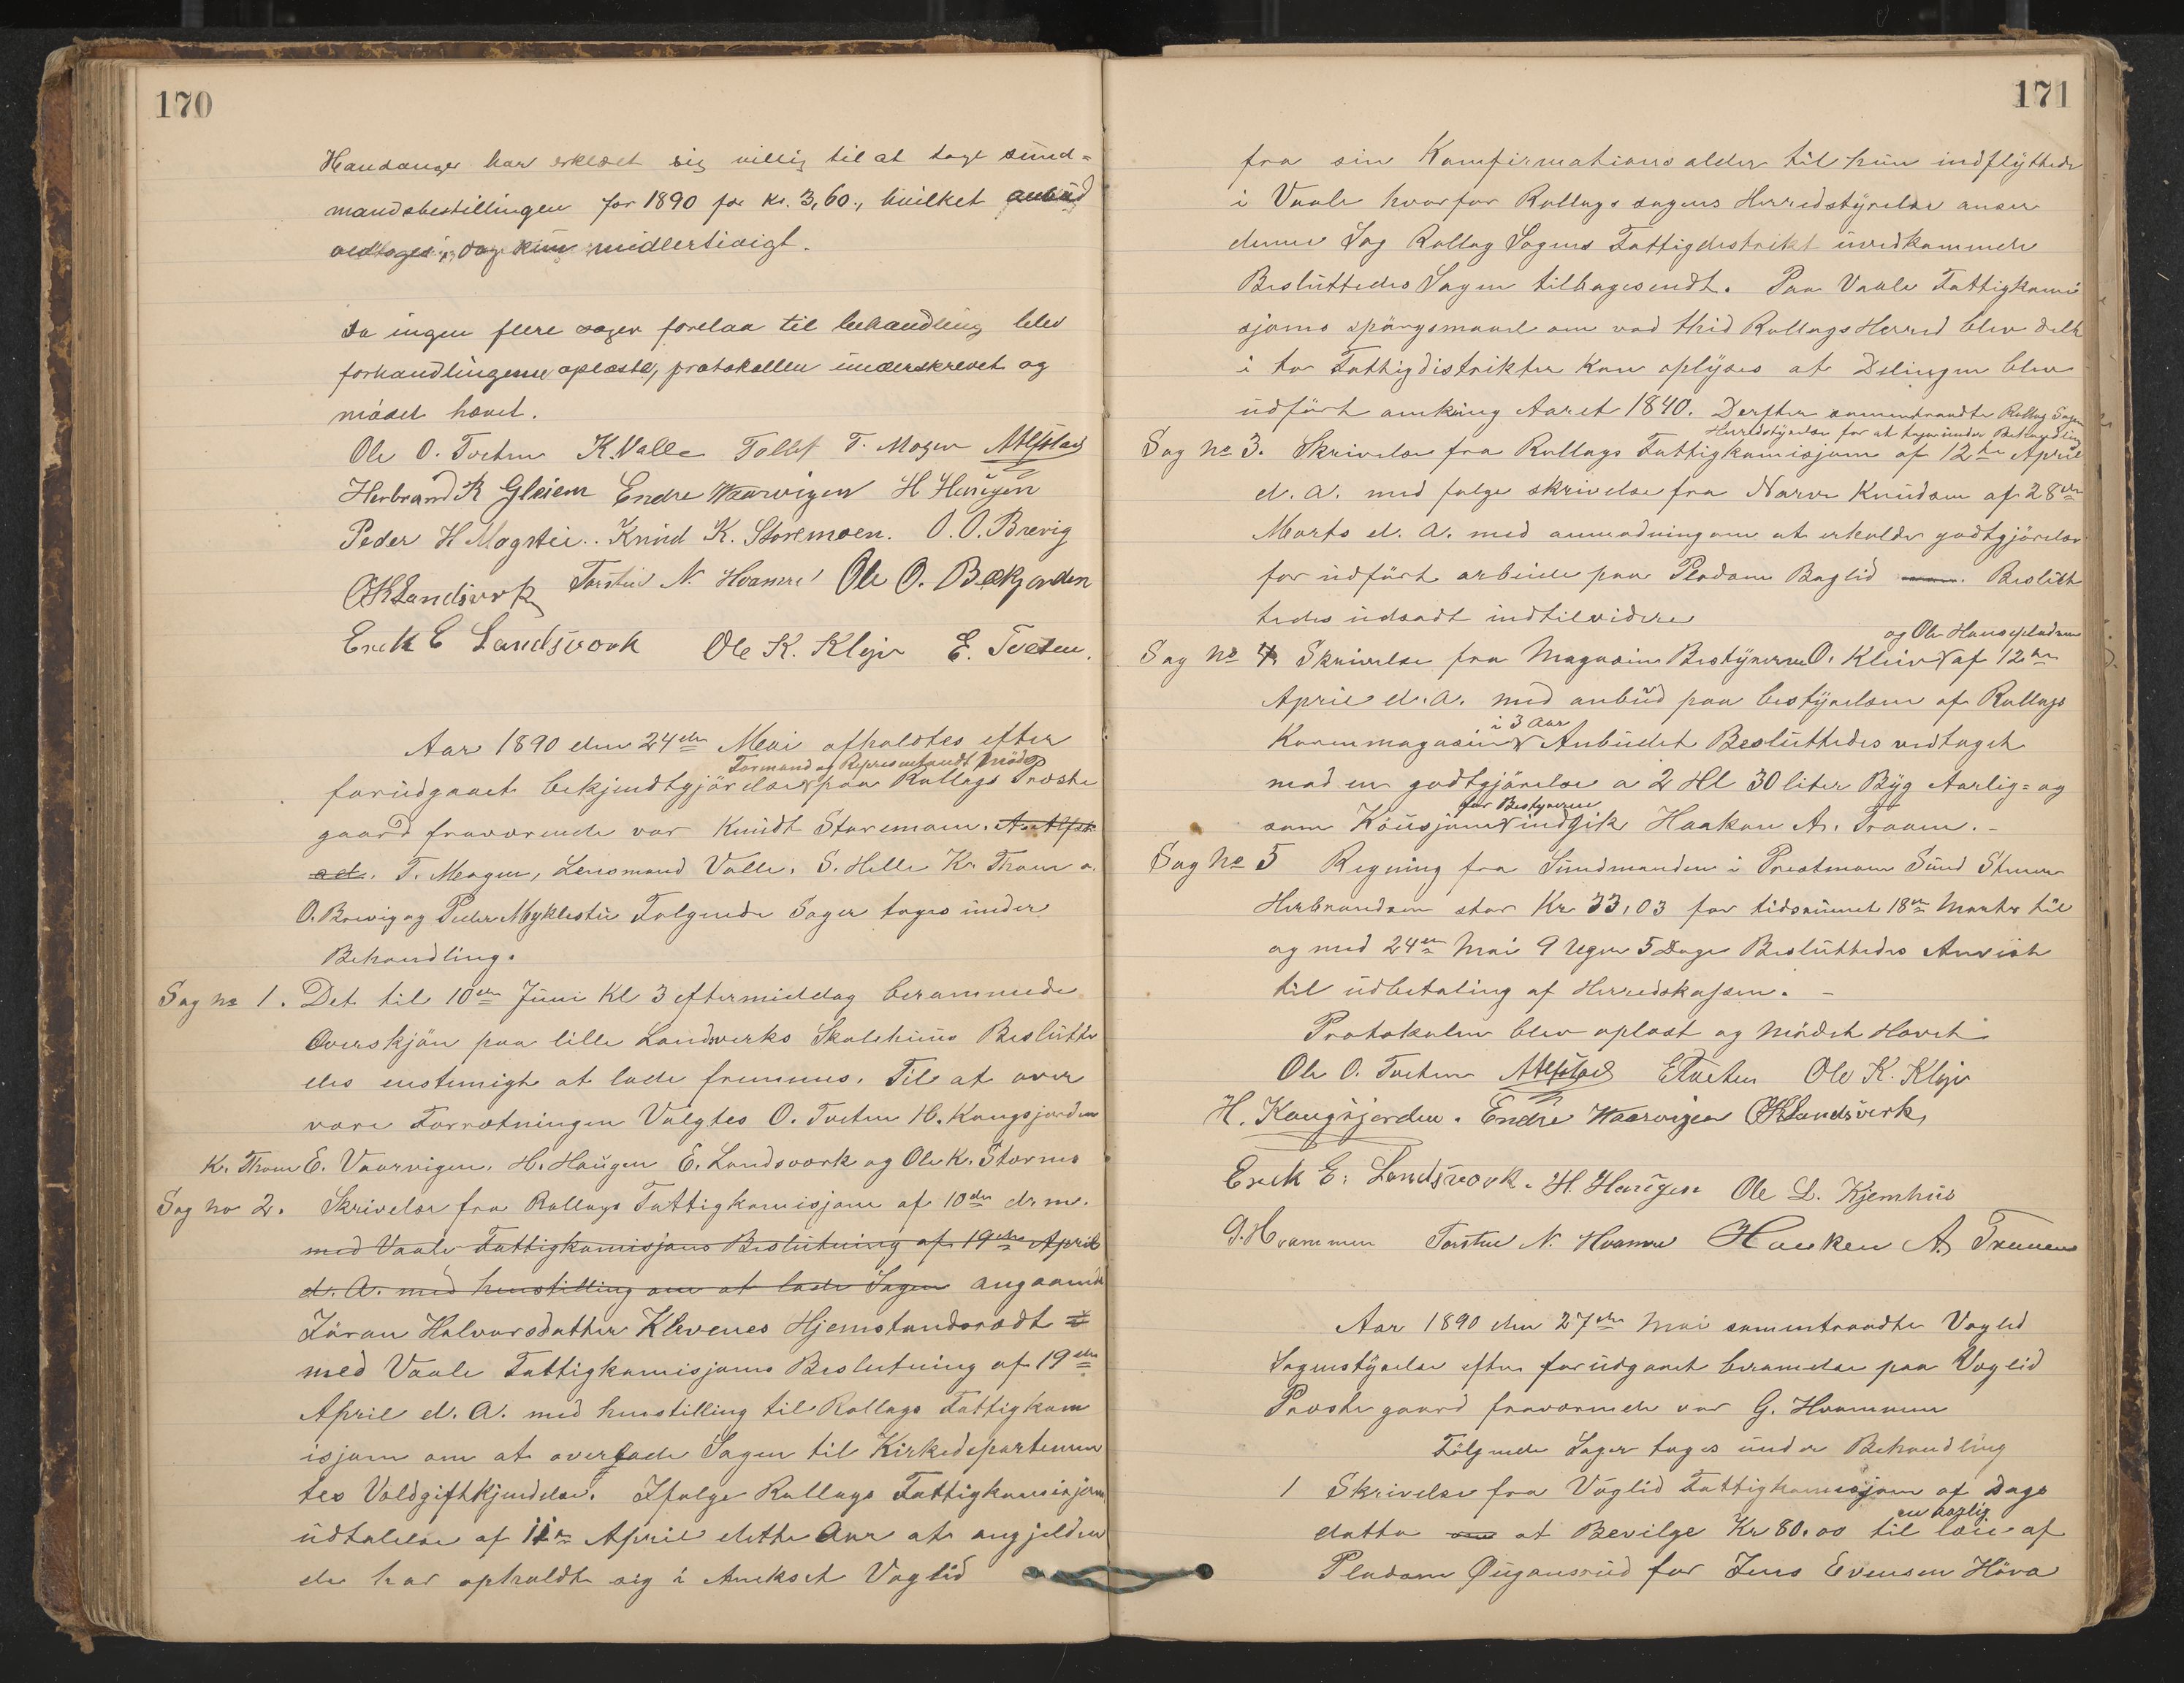 170
Handanger har erklæret sig villig til at tage sund-
mandsbestillingen for 1890 for kr. 3,60., hvilket anbud
vedtoges i dag kun midlertidigt.
Da ingen flere sager forelaa til behandling blev
forhandlingerne oplæste, protokollen underskrevet og
mödet hævet.
Ole O. Tveten K. Valle Tollef T. Mogen
Herbrand K Gleiem Endre Waarvigen H Haugen
Peder H Magstii.. Knud K. Storemoen. O. O. Brevig
OKLandsverk Torstein N. Hvamre Ole O. Bækjorden
Erek E Landsvork Ole K. Kleiv E. Tveten.
Aar 1890 den 24de Mai afholdtes efter
Formand og Represæntandt Möde
forudgaaet bekjendtgjörelse paa Rollags Præste
gaard fraværende var Knudt Storemoen. A. Alfst
ad. T. Mogen, Lensmand Valle. S. Helle Kr. Traaen o.
O. Brevig og Peder Myklestu Folgende Sager toges under
Behandling.
Sag No 1. Det til 10de Juni Kl 3 eftermiddag berammede
Overskjön paa lille Landsverks Skolehuus Beslutte
des enstemigt at lade fremmes. Til at over
være Forretningen Valgtes O. Tveten H. Kongsjorden
K. Traaen E. Vaarvigen. H. Haugen E. Landsvork og Ole K. Stormo
Sag No 2. Skrivelse fra Rollags Fattigkomisjon af 10de d. m.
med Vaale Fattigkomisjons Beslutning af 19de April
d. A. med henstilling om at lade Sagen angaaende
Jöran Halvorsdatter Klevenes Hjemstandsrædt
med Vaale Fattigkomisjons Beslutning af 19de
April d. A. med henstilling til Rollags Fattigkom
isjon om at overlade Sagen til Kirkedepartemen
tes Voldgiftkjendelse. Ifølge Rollags Fattigkomisjons
udtalelse af 11te April dette Aar at angjelden
de har opholdt sig i Annekset Væglid
171
fra sin Komfirmations alder til hun indflyttede
i Vaale hvorfor Rollags sogns Herredstyrelse anser
denne Sag Rollag Sogns Fattigdistrikt uvedkommende
Besluttedes Sagen tilbagesendt. Paa Vaale Fattigkomi
sjons spörgsmaal om vad thid Rollags Herred blev delt
i to Fattigdistrikter kan oplyses at Delingen blev
udfört omkring Aaret 1840. Derefter sammentraadte Rollag Sogns
Herredstyrelse for at tage under Behandling
Sag No 3. Skrivelse fra Rollags Fattigkomisjon af 12te April
d. a. med følge skrivelse fra Narve Knudsen af 28de
Marts d. A. med anmodning om at erholde godtgjörelse
for udfört arbeide paa Pladsen Baglid. Beslut
tedes udsadt indtilvidere
og Ole Haugepladsen
Sag No 4 Skrivelse fra Magasin Bestyrerne O. Kleiv af 12te
April d. A. med anbud paa bestyrelsen af Rollags
i 3 Aar
Kornmagasin Anbudet Besluttedes vedtaget
mod en godtgjörelse a 2 Hl 30 liter Byg Aarlig- og
for Bestyrerne
som Kousjon indgik Haakon A. Traaen. -
Sag No 5 Regning fra Sundmanden i Præstmoen Sund Steen
Herbrandsen stor Kr 33,03 for tidsrumet 18de Marts til
og med 24de Mai 9 Uger 5 Dage Besluttedes Anvist
til udbetaling af Herredskassen. -
Protokolen blev oplæst og Mödet Hævet
Ole O. Tveten E Tveten Ole K. Kleiv
H. Kongsjorden. Endre Waarvigen OKLandsverk,
Erek E. Landsvork. H. Haugen Ole L. Kjemhus
G. Hvammen Torsten N. Hvamre Haaken A. Traaen
Aar 1890 den 27de Mai sammentraadte Væglid
Sognestyrelse efter forudgaaet beramelse paa Væglid
Præstegaard fraværende var G. Hvammen
Fölgende Sager toges under Behandling
1 Skrivelse fra Væglid Fattigkomisjon af Dags
en aarlig
datto om at Bevilge Kr 80.00 til leie af
Pladsen Øygansrud for Jens Evensen Höva